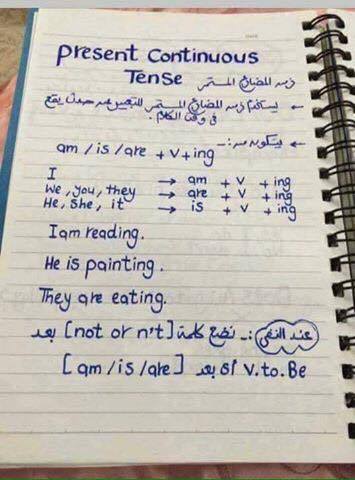 Present Continuous
Tense زمن المضارع المستمر
← يستخدم زمن المضارع المستمر للتعبير عن حدث يقع
فى وقت الكلام.
← يتكون من :-
am / is / are + v + ing
I → am + v + ing
We, you, they → are + v + ing
He, she, it → is + v + ing
I am reading.
He is painting.
They are eating.
عند النفى :- نضع كلمة [not or n't] بعد
[am / is / are] بعد of v. to. Be